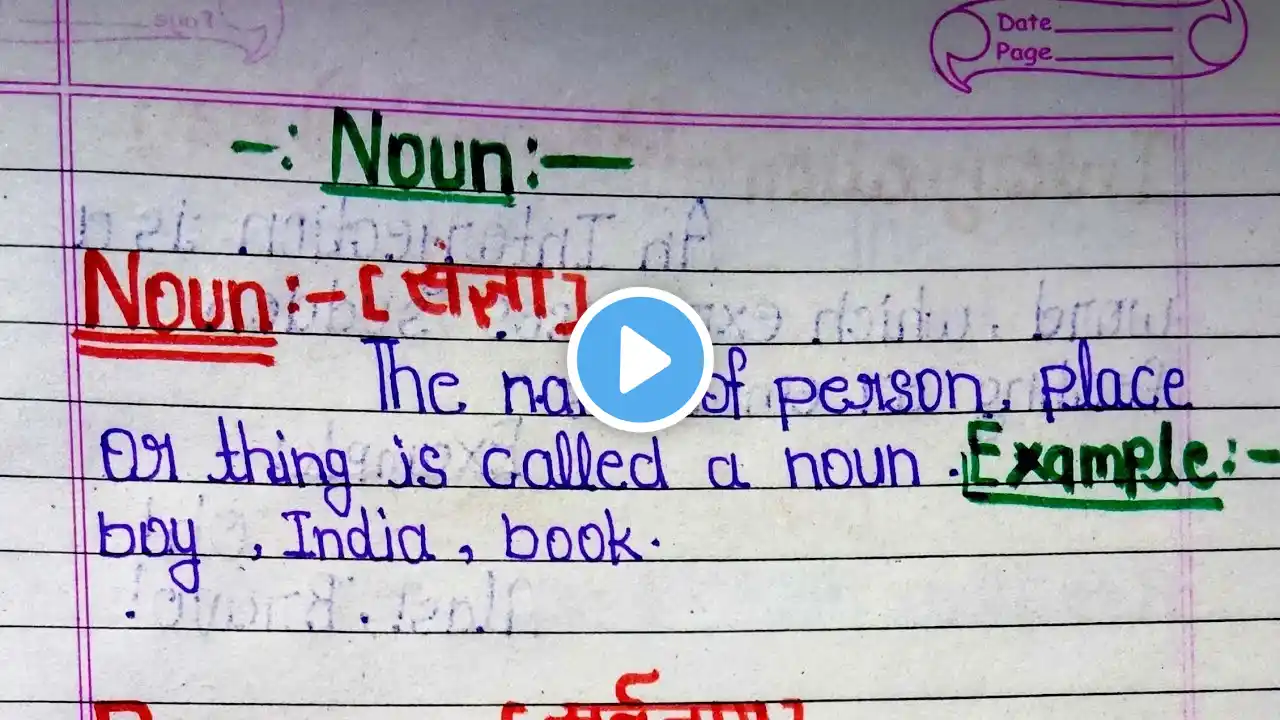 Date
Page
-: Noun:-
Noun:- [संज्ञा]
The of person, place
or thing is called a noun. Example:-
boy, India, book.